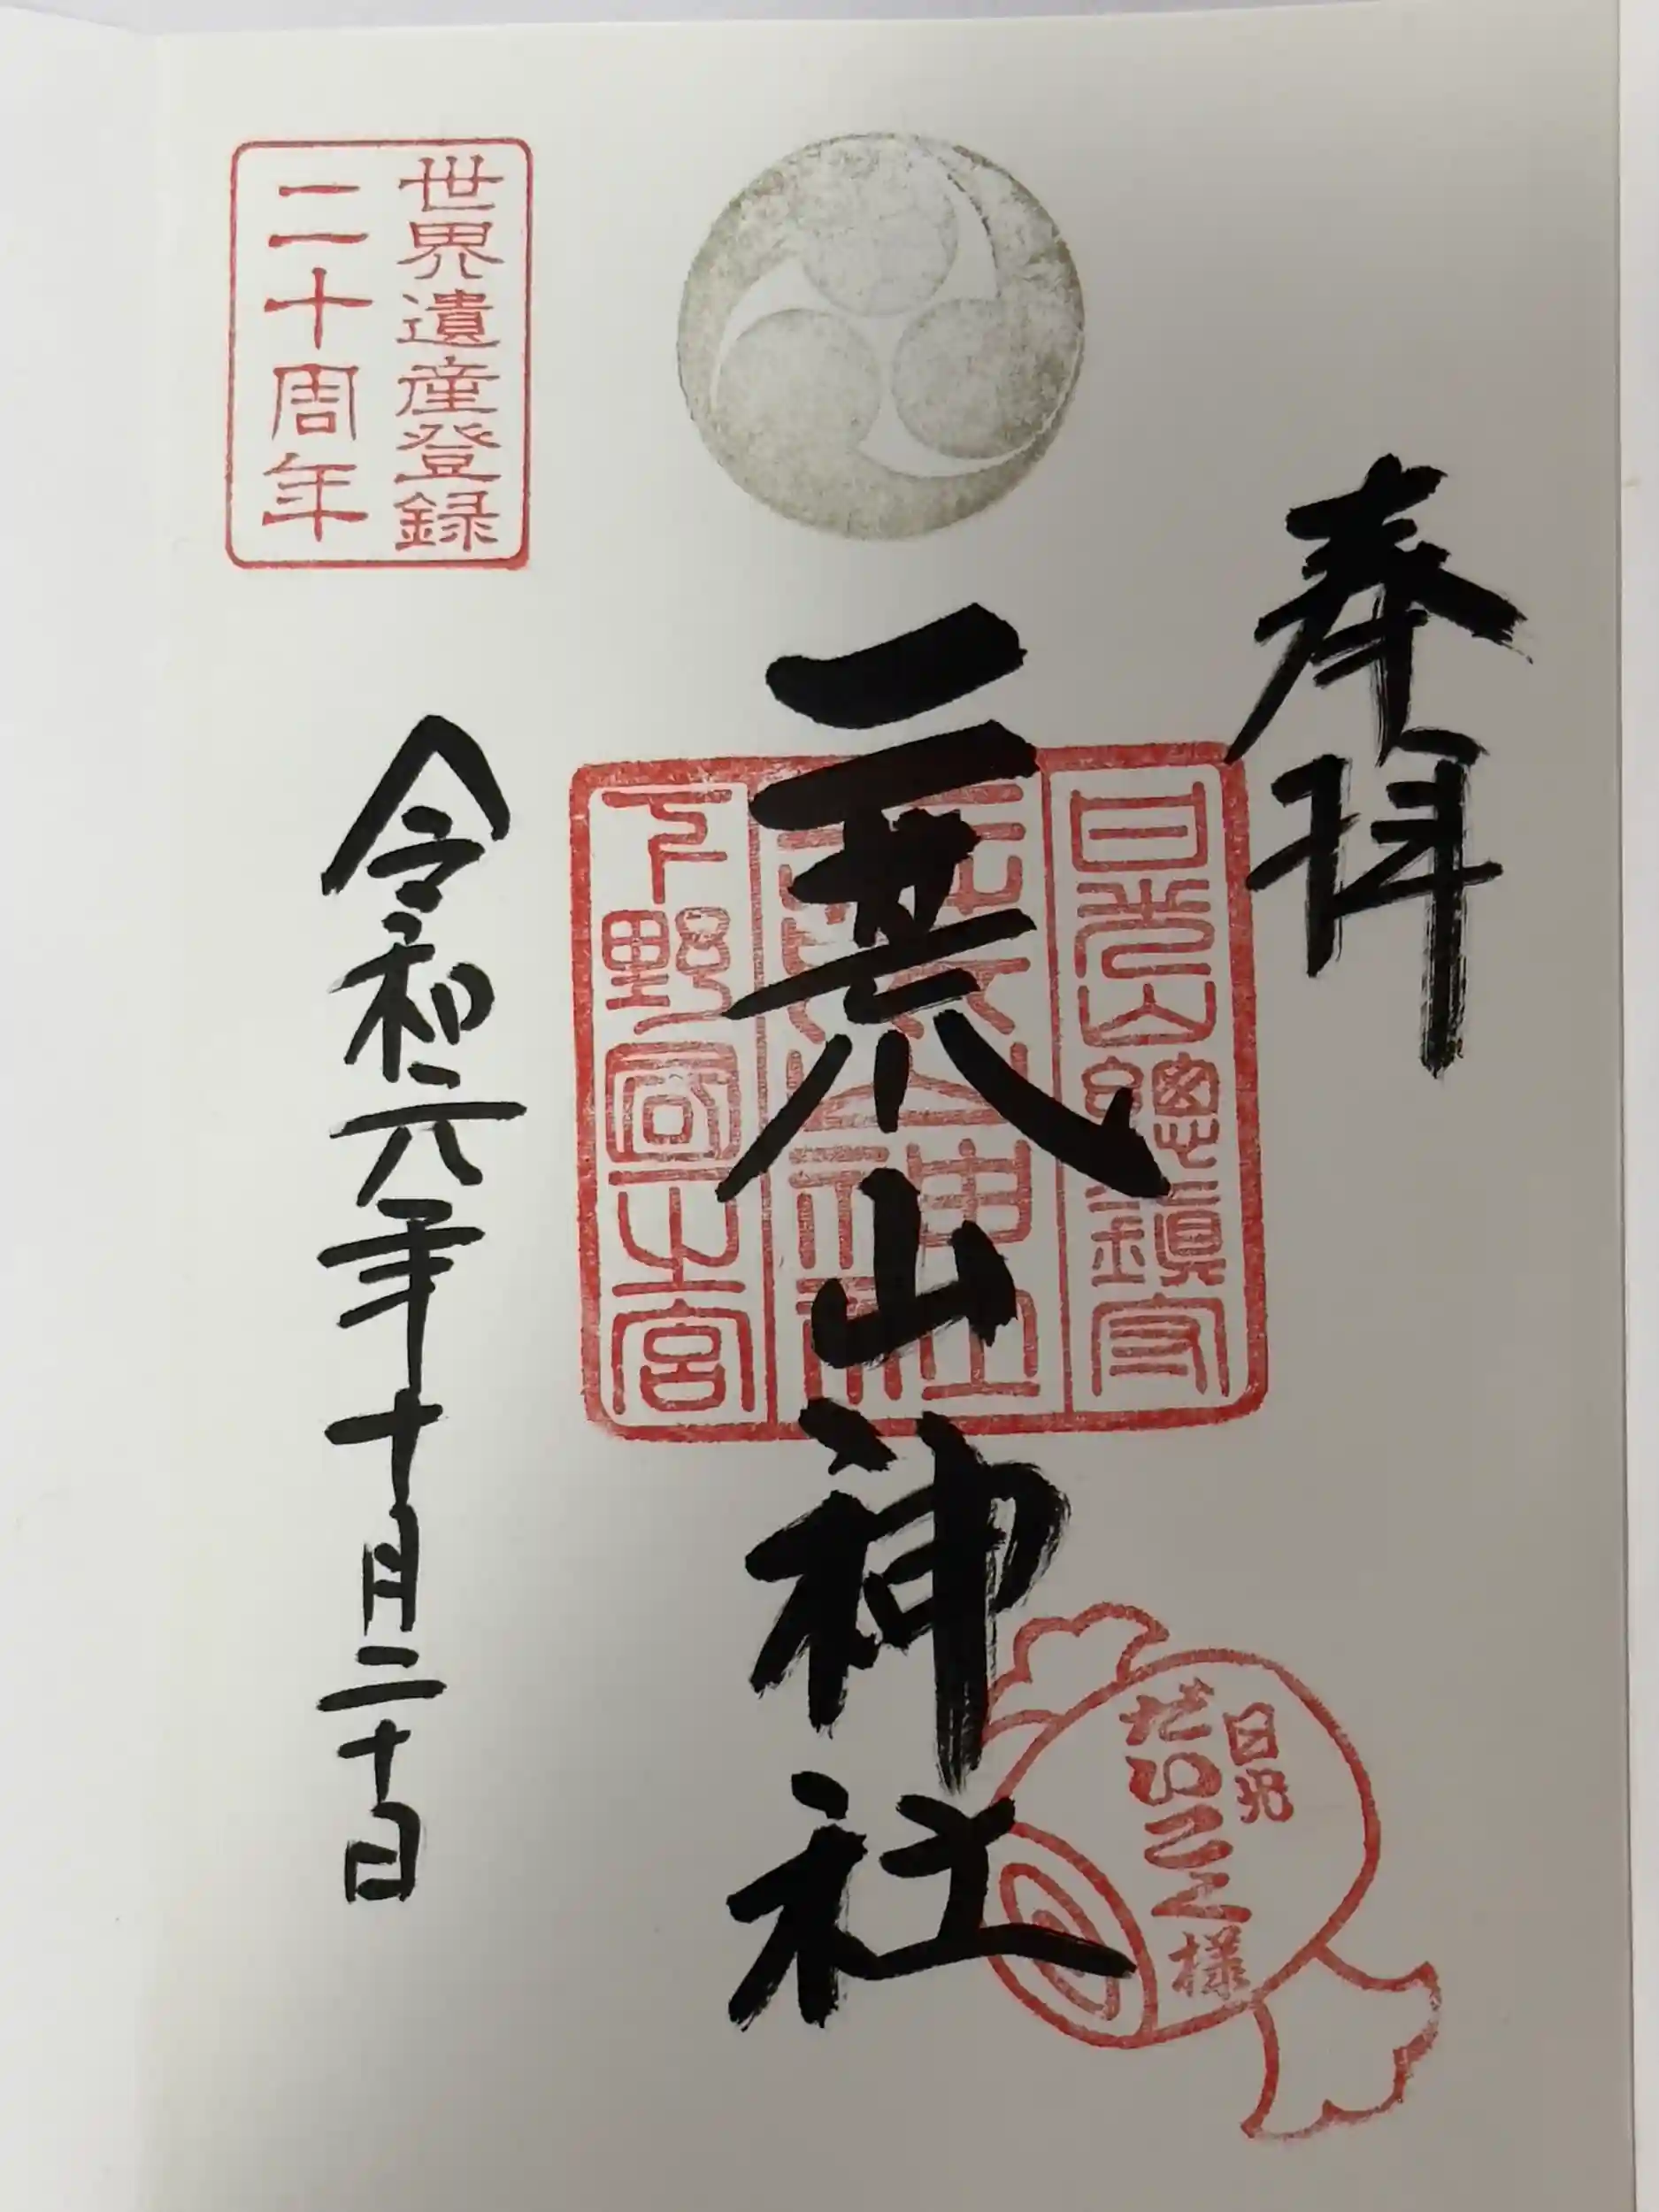 奉拝
日光山總鎮守
二荒山神社
下野國一之宮
二荒山神社
日光
だいこく様
令和六年十月二十日
世界遺産登録
二十周年